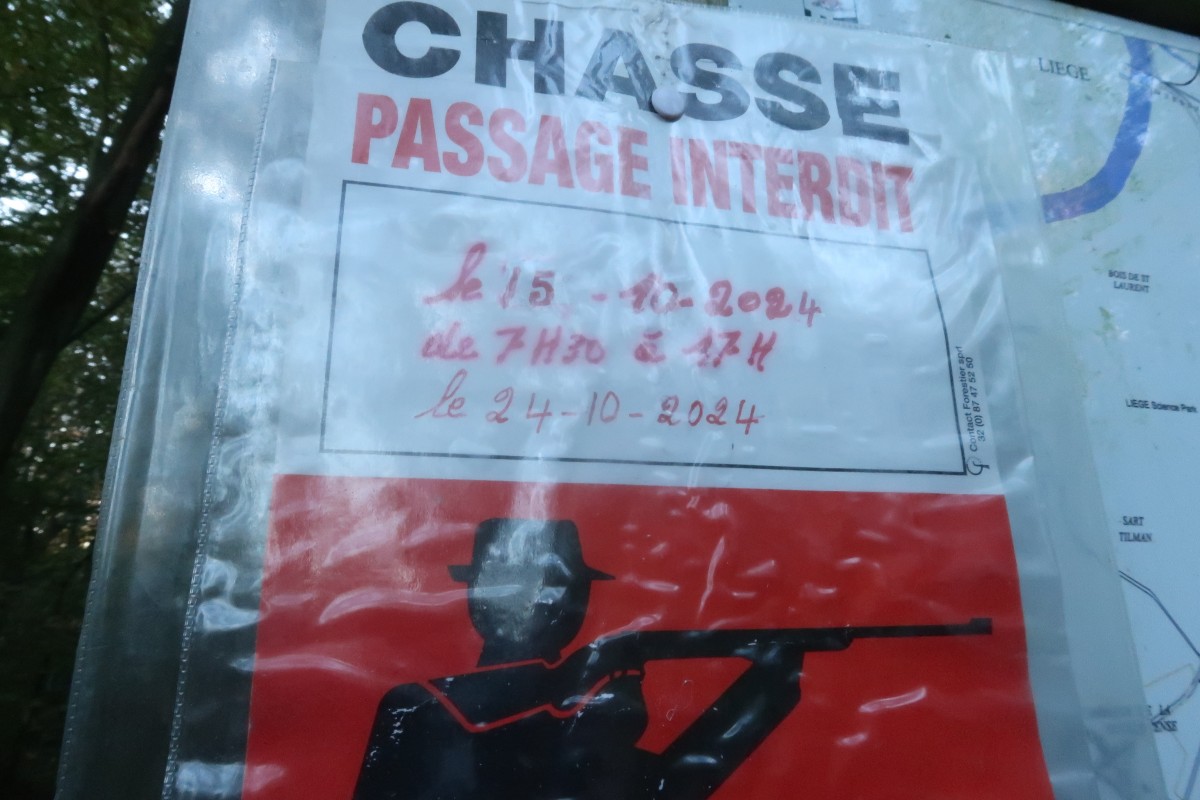 CHASSE
PASSAGE INTERDIT
le 15 -10-2024
de 7H30 à 17H
le 24-10-2024
Contact Forestier sprl
32 (0) 87 47 52 50
LIEGE
BOIS DE ST
LAURENT
LIEGE Science Park
SART
TILMAN
LA